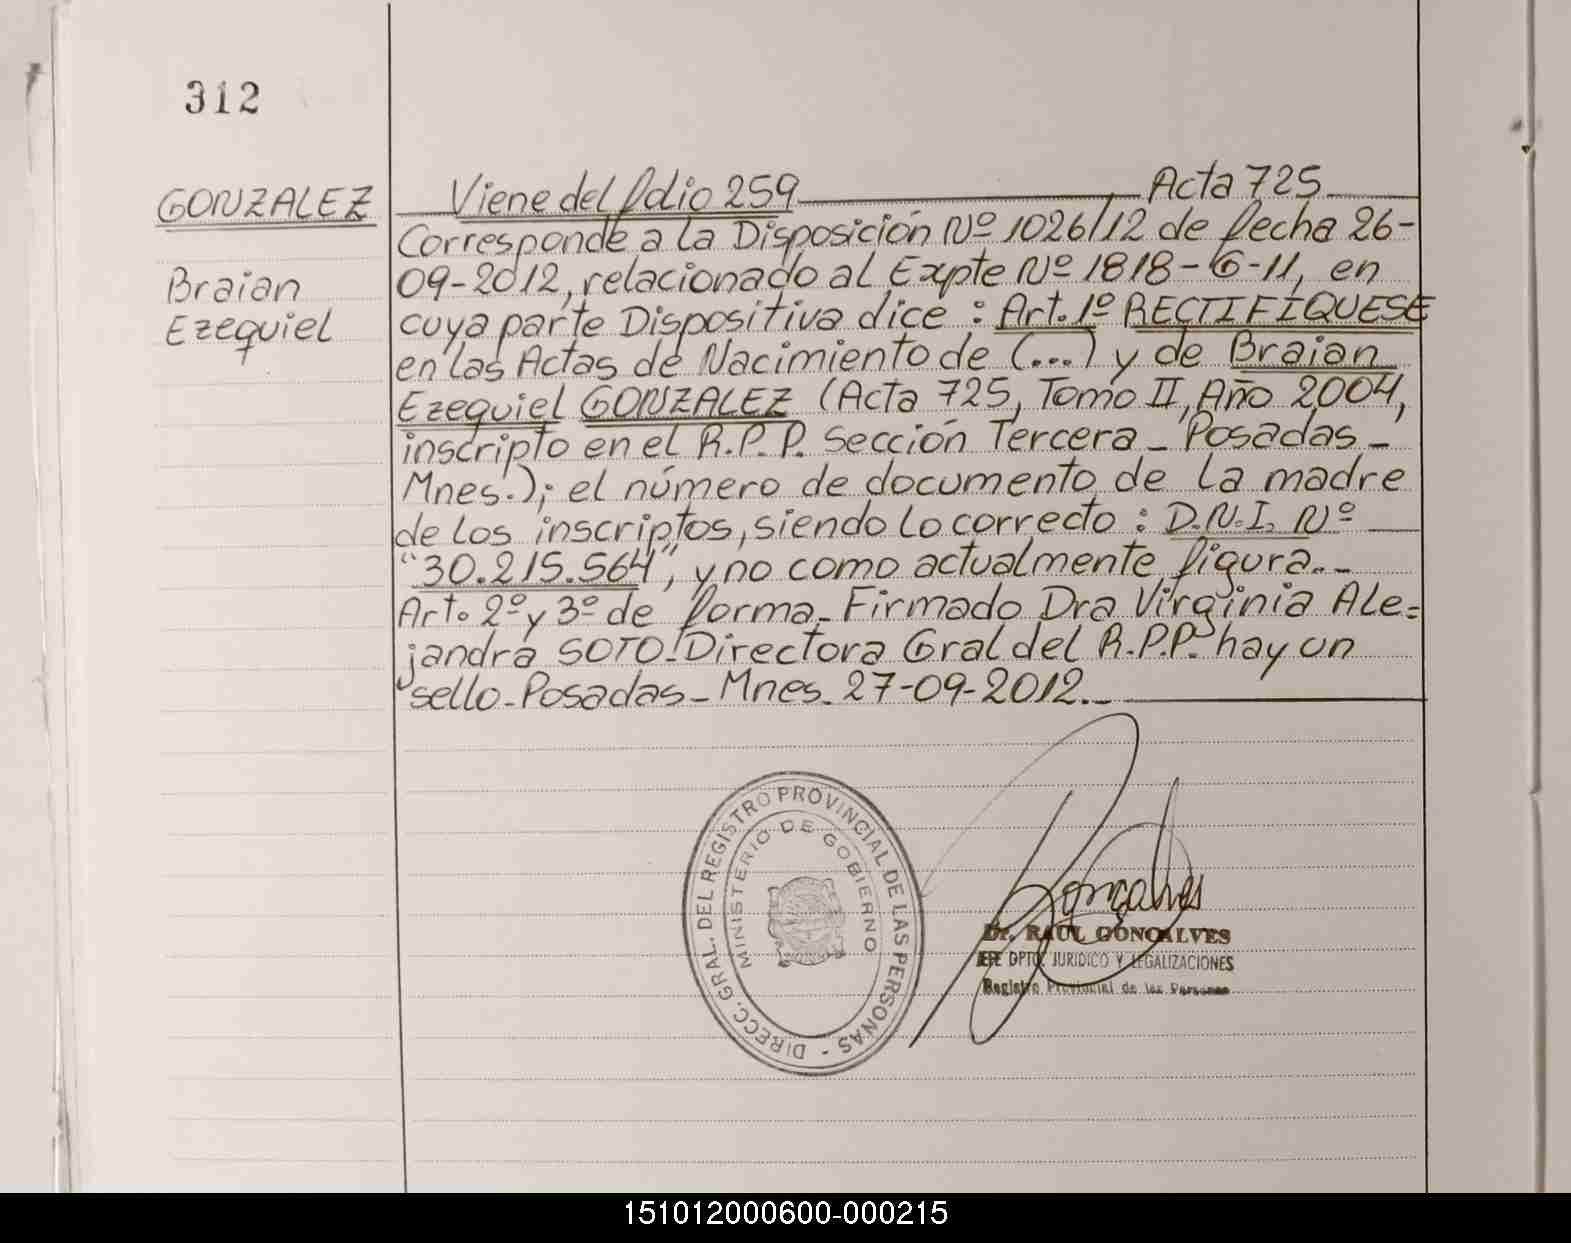 312
GONZALEZ
Braian
Ezequiel
Viene del folio 259 Acta 725
Corresponde a la Disposición Nº 1026/12 de fecha 26-
09-2012, relacionado al Expte Nº 1818-G-11, en
cuya parte Dispositiva dice: Art. 1º RECTIFIQUESE
en las Actas de Nacimiento de (...) y de Braian
Ezequiel GONZALEZ (Acta 725, Tomo II, Año 2004,
inscripto en el R.P.P. Sección Tercera - Posadas -
Mnes.); el número de documento de la madre
de los inscriptos, siendo lo correcto: D.N.I. Nº
"30.215.564", y no como actualmente figura.-
Art. 2º y 3º de forma. Firmado Dra Virginia Ale=
jandra SOTO. Directora Gral del R.P.P. hay un
sello - Posadas - Mnes. 27-09-2012.
DIRECC. GRAL. DEL REGISTRO PROVINCIAL DE LAS PERSONAS -
MINISTERIO DE GOBIERNO
Gonçalves
Dr. RAUL GONÇALVES
JEFE DPTO. JURIDICO Y LEGALIZACIONES
Registro Provincial de las Personas
151012000600-000215